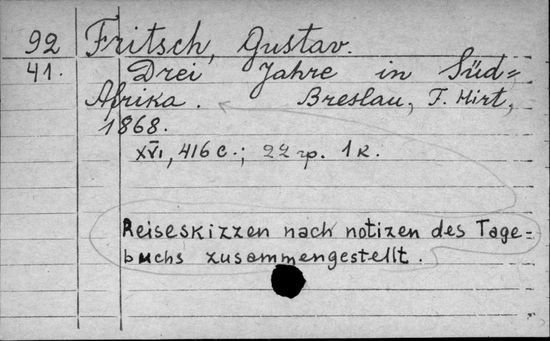 92 Fritsch, Gustav.
41. Drei Jahre in Süd=
Afrika. Breslau, F. Hirt,
1868.
XVI, 416 c.; 22 гр. 1 к.
Reiseskizzen nach notizen des Tage=
buchs zusammengestellt.